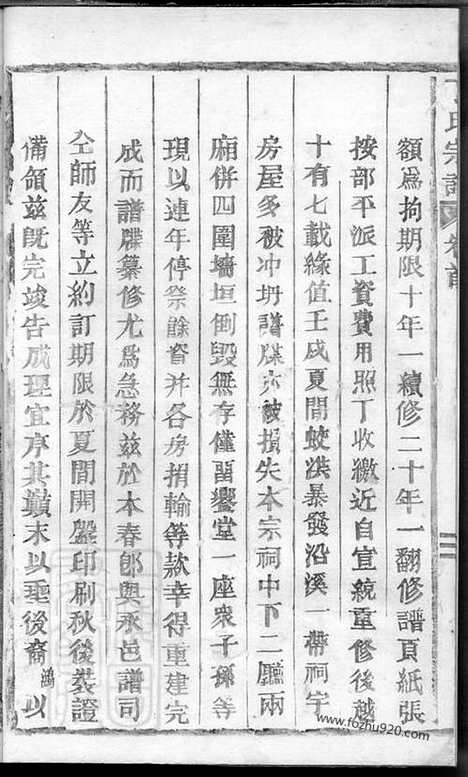 氏宗譜 卷首
額爲拘期限十年一續修二十年一翻修譜頁紙張
按部平派工資費用照丁收繳近自宣統重修後越
十有七載緣值壬戌夏間蛟洪暴發沿溪一帶祠宇
房屋多被冲坍譜牒亦被損失本宗祠中下二廳兩
廂併四圍墻垣倒毀無存僅畱饗堂一座衆子孫等
現以連年停祭餘資并各房捐輸等款幸得重建完
成而譜牒纂修尤爲急務兹於本春郎與永邑譜司
仝師友等立約訂期限於夏間開盤印刷秋後裝證
備領兹旣完竣告成理宜序其巔末以埀後裔鴻以
www.fozhu920.com